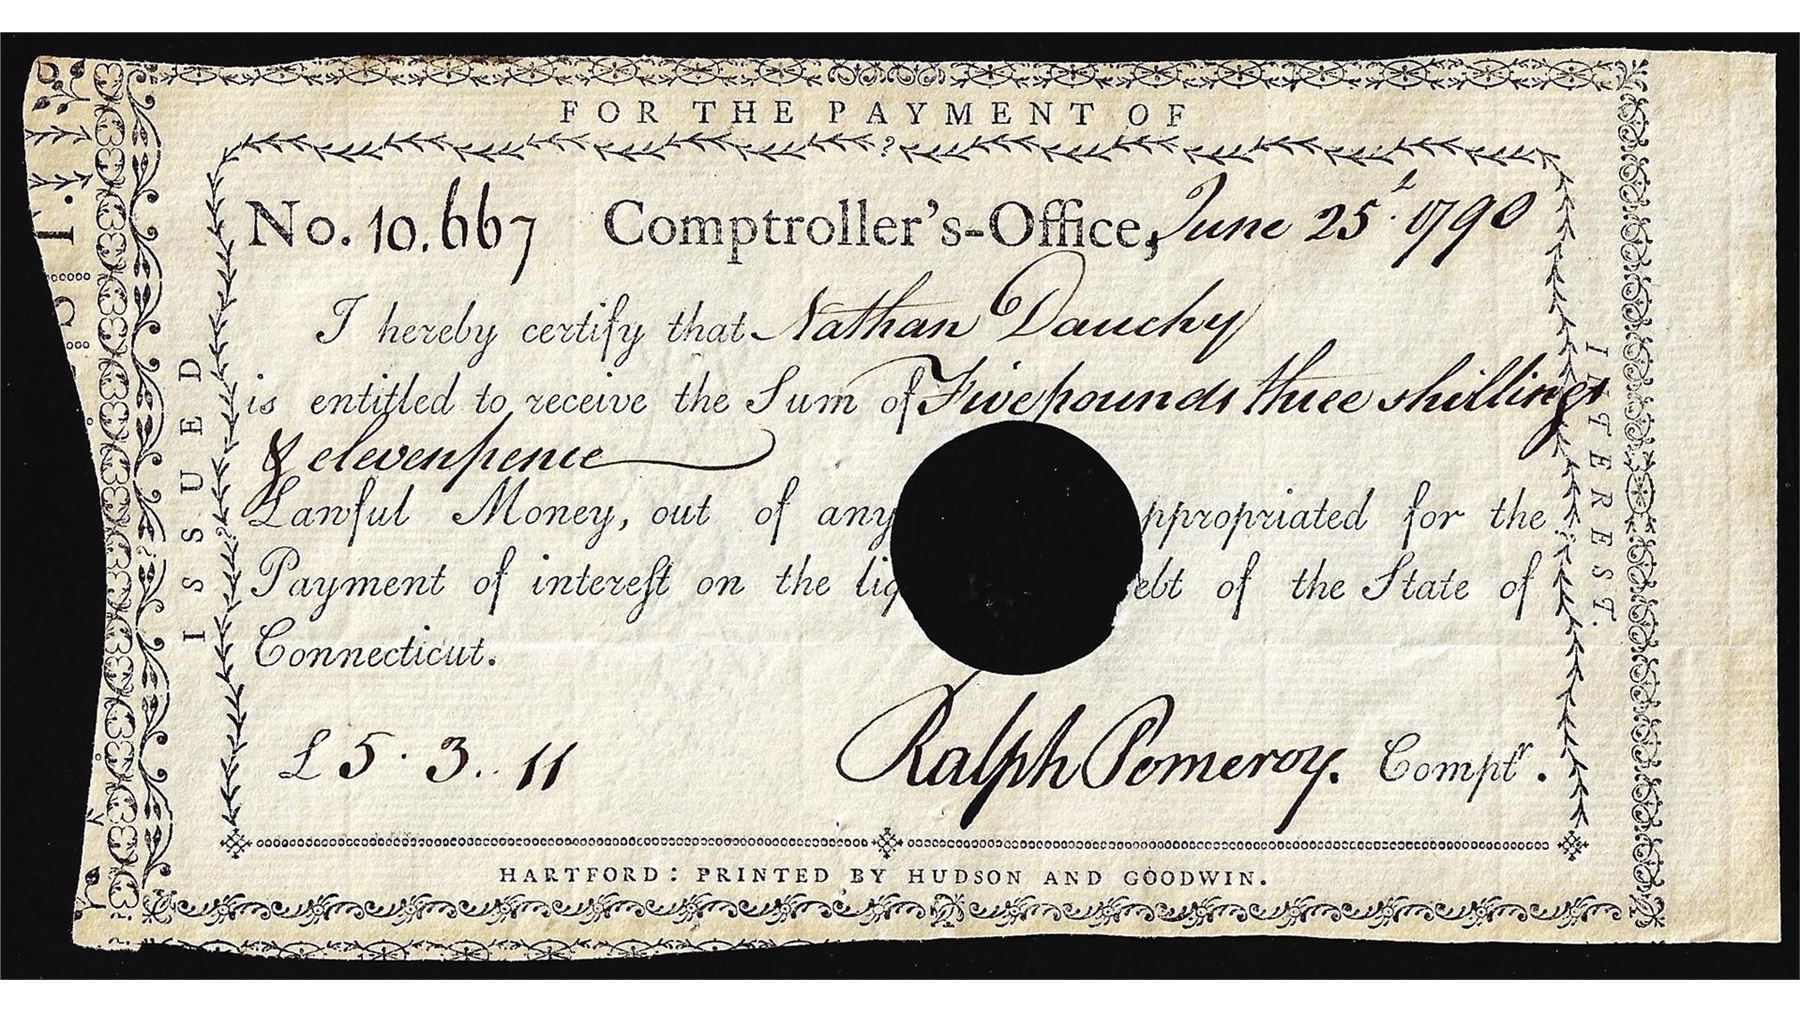 FOR THE PAYMENT OF
No. 10.667 Comptroller's-Office, June 25.t 1790
I hereby certify that Nathan Dauchy
is entitled to receive the Sum of Five pounds three shillings
& eleven pence
Lawful Money, out of any ppropriated for the
Payment of intereſt on the liq ebt of the State of
Connecticut.
£ 5. 3.. 11
Ralph Pomeroy. Comptr.
HARTFORD: PRINTED BY HUDSON AND GOODWIN.
ISSUED
INTEREST.